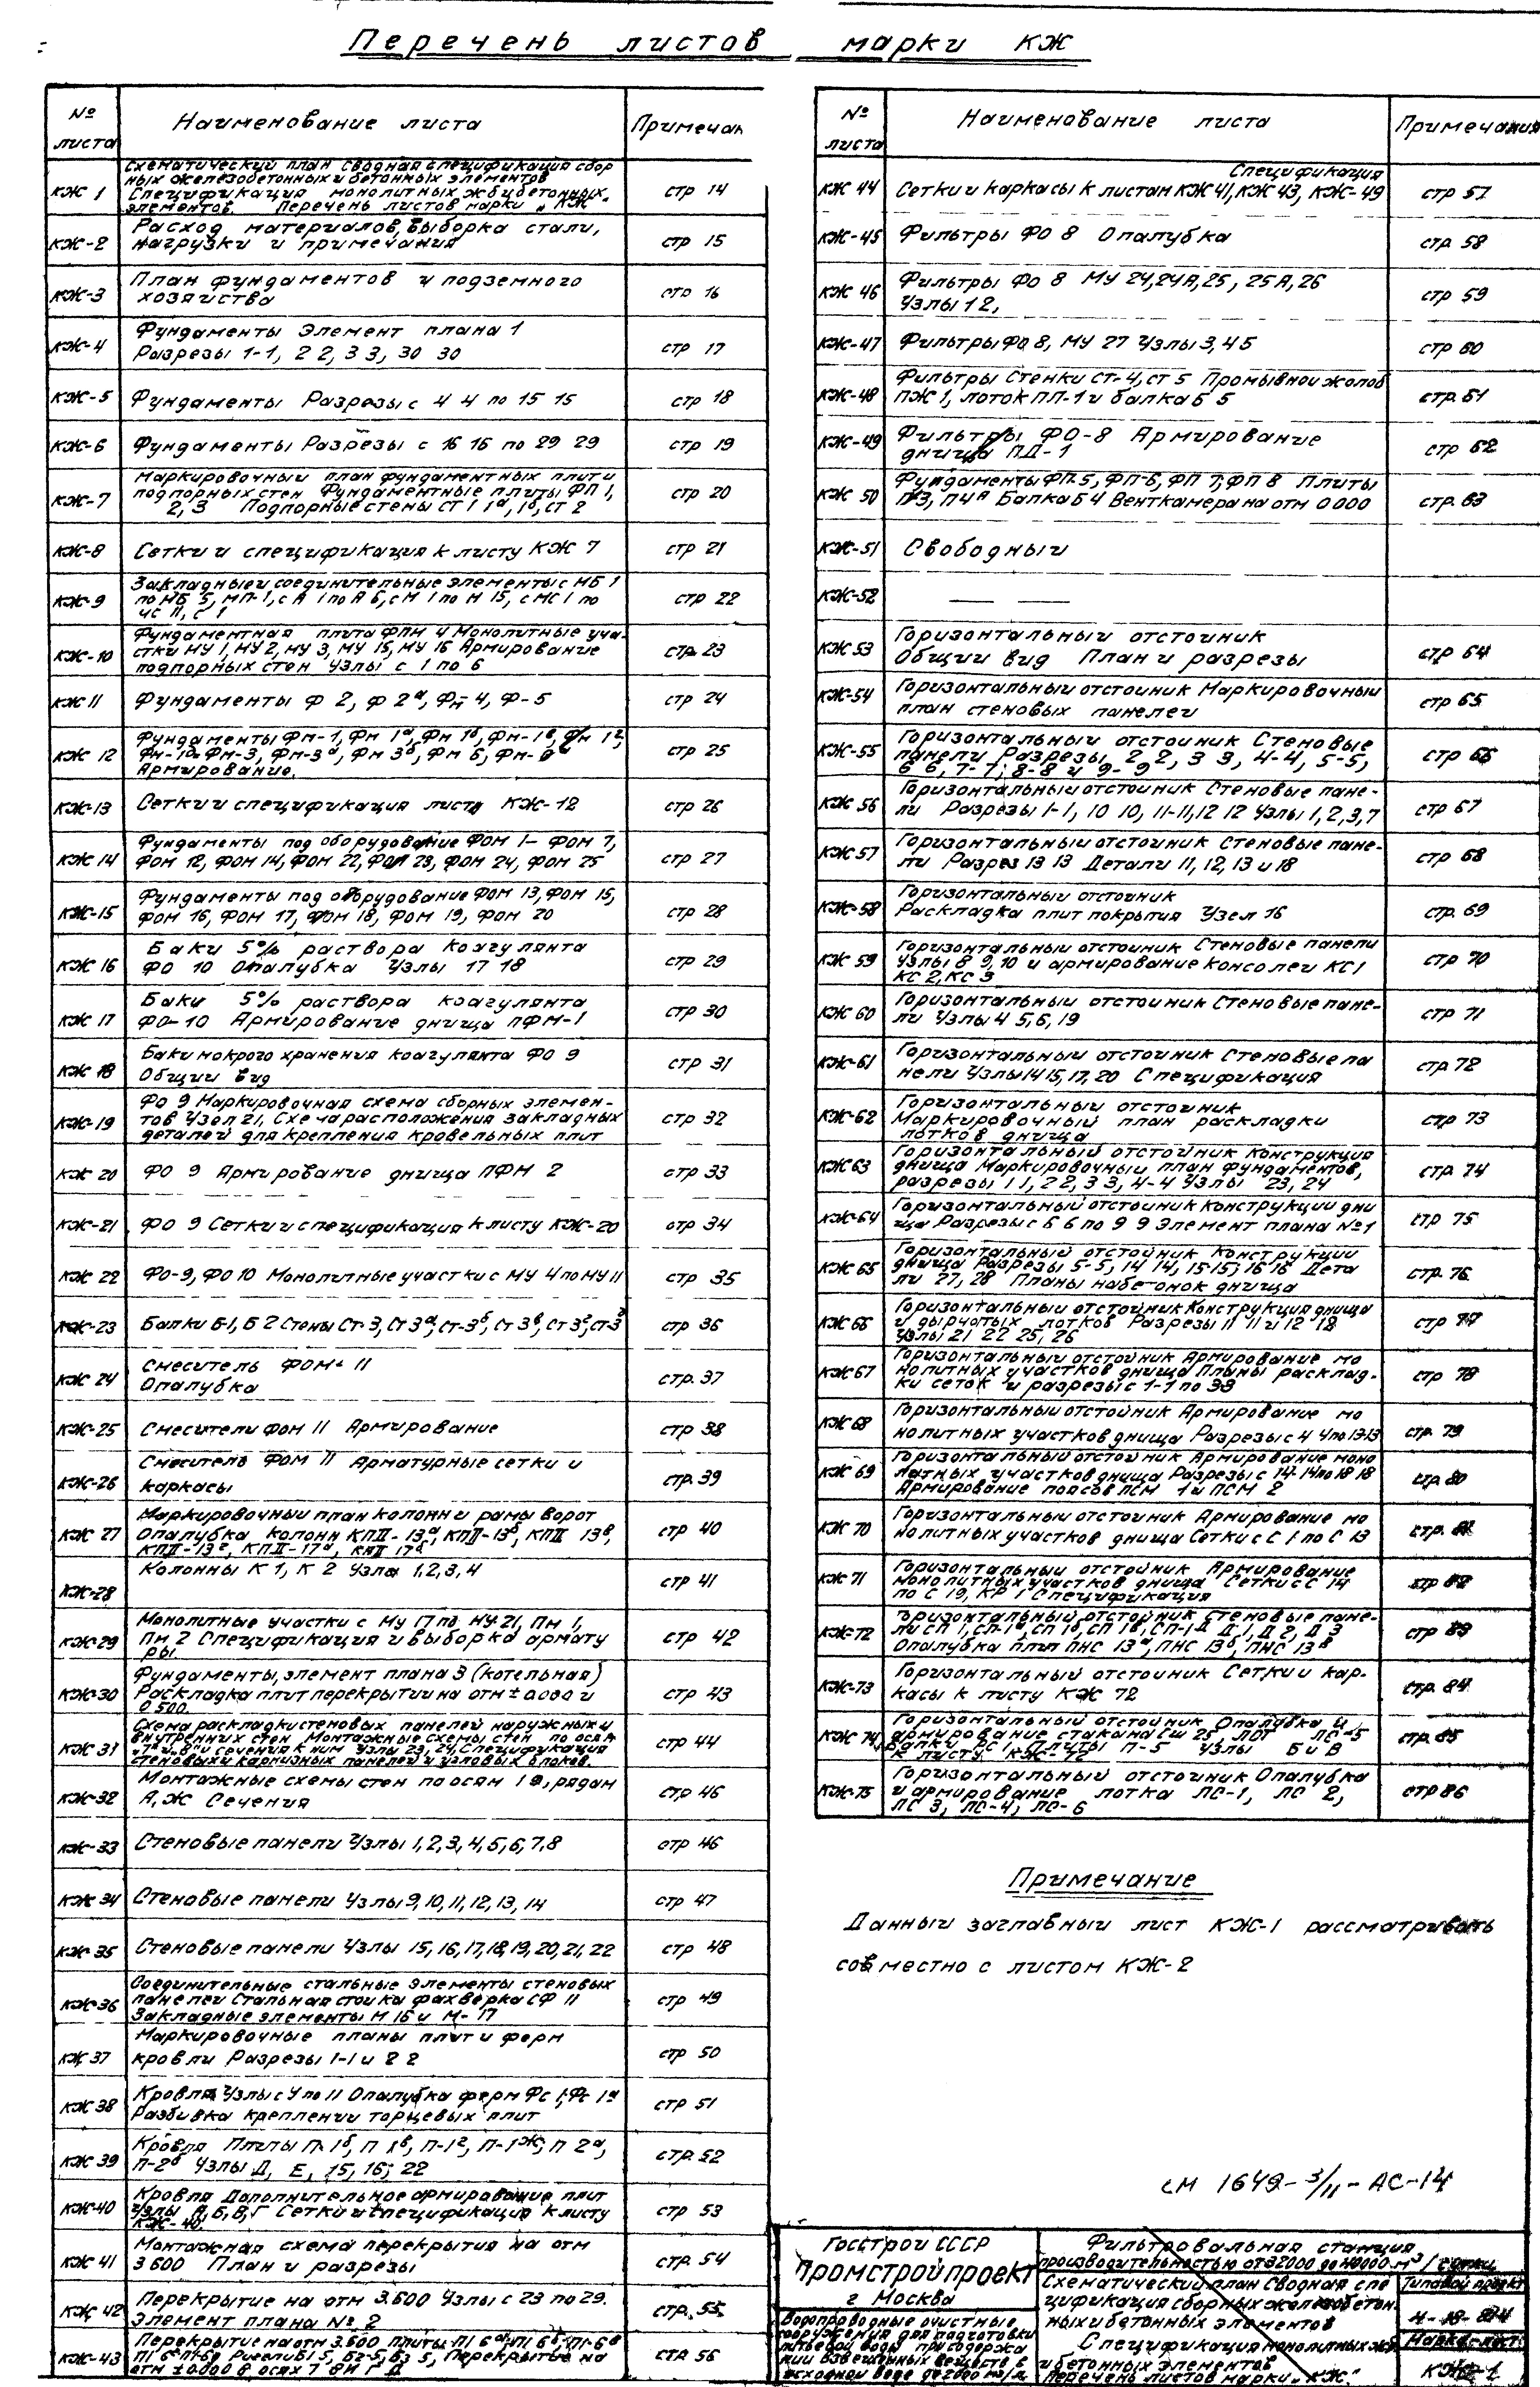 Перечень листов марки КЖ
№ листа Наименование листа Примечан
КЖ 1 Схематический план сводная спецификация сбор
ных железобетонных и бетонных элементов
Спецификация монолитных ж б и бетонных
элементов. Перечень листов марки „КЖ" стр 14
КЖ-2 Расход материалов, выборка стали,
нагрузки и примечания стр 15
КЖ-3 План фундаментов и подземного
хозяйства стр 16
КЖ-4 Фундаменты Элемент плана 1
Разрезы 1-1, 2 2, 3 3, 30 30 стр 17
КЖ-5 Фундаменты Разрезы с 4 4 по 15 15 стр 18
КЖ-6 Фундаменты Разрезы с 16 16 по 29 29 стр 19
КЖ-7 Маркировочный план фундаментных плит и
подпорных стен Фундаментные плиты ФП 1,
2, 3 Подпорные стены СТ 1 1а, 1б, СТ 2 стр 20
КЖ-8 Сетки и спецификация к листу КЖ 7 стр 21
КЖ-9 Закладные и соединительные элементы с МБ 1
по МБ 5, МП-1, с А 1 по А 6, с М 1 по М 15, с МС 1 по
стр 22
КЖ-10 Фундаментная плита ФПМ 4 Монолитные уча-
стки МУ 1, МУ 2, МУ 3, МУ 15, МУ 16 Армирование
подпорных стен Узлы с 1 по 6 стр 23
КЖ 11 Фундаменты Ф 2, Ф 2а, Фм-4, Ф-5 стр 24
КЖ 12 Фундаменты Фм-1, Фм 1а, Фм 1б, Фм-1в, Фм 1г,
Фм-3, Фм-3а, Фм 3б, Фм 6,
Армирование. стр 25
КЖ-13 Сетки и спецификация листа КЖ-12 стр 26
КЖ 14 Фундаменты под оборудование ФОМ 1- ФОМ 7,
ФОМ 12, ФОМ 14, ФОМ 22, ФОМ 23, ФОМ 24, ФОМ 25 стр 27
КЖ-15 Фундаменты под оборудование ФОМ 13, ФОМ 15,
ФОМ 16, ФОМ 17, ФОМ 18, ФОМ 19, ФОМ 20 стр 28
КЖ 16 Баки 5% раствора коагулянта
ФО 10 Опалубка Узлы 17 18 стр 29
КЖ 17 Баки 5% раствора коагулянта
ФО-10 Армирование днища ПФМ-1 стр 30
КЖ 18 Баки мокрого хранения коагулянта ФО 9
Общий вид стр 31
КЖ-19 ФО 9 Маркировочная схема сборных элемен-
тов Узел 21, Схема расположения закладных
деталей для крепления кровельных плит стр 32
КЖ 20 ФО 9 Армирование днища ПФМ 2 стр 33
КЖ-21 ФО 9 Сетки и спецификация к листу КЖ-20 стр 34
КЖ 22 ФО-9, ФО 10 Монолитные участки с МУ 4 по МУ 11 стр 35
КЖ-23 Балки Б-1, Б 2 Стены Ст-3, Ст 3а, Ст-3б, Ст 3в, Ст 3г, Ст 3д стр 36
КЖ 24 Смеситель ФОМ 11
Опалубка стр. 37
КЖ-25 Смесители ФОМ 11 Армирование стр 38
КЖ-26 Смеситель ФОМ 11 Арматурные сетки и
каркасы стр. 39
КЖ 27 Маркировочный план колонн и рамы ворот
Опалубка колонн КПII-13а, КПII-13б, КПII 13в,
КПII-13г, КПII-17а, КПII 17б стр 40
КЖ-28 Колонны К 1, К 2 Узлы 1,2,3,4 стр 41
КЖ-29 Монолитные участки с МУ 17 по МУ-21, Пм 1,
Пм 2 Спецификация и выборка армату
ры стр 42
КЖ-30 Фундаменты, элемент плана 3 (котельная)
Раскладка плит перекрытии на отм ± 0.000 и
0 500. стр 43
КЖ 31 Схема раскладки стеновых панелей наружных и
внутренних стен Монтажные схемы стен по осям
сечения к ним Узлы 23, 24, Спецификация
стеновых и карнизных панелей и угловых блоков. стр 44
КЖ-32 Монтажные схемы стен по осям 1 8, рядам
А, Ж Сечения стр 46
КЖ-33 Стеновые панели Узлы 1,2,3,4,5,6,7,8 стр 46
КЖ 34 Стеновые панели Узлы 9, 10, 11, 12, 13, 14 стр 47
КЖ-35 Стеновые панели Узлы 15, 16, 17, 18, 19, 20, 21, 22 стр 48
КЖ-36 Соединительные стальные элементы стеновых
панелей Стальная стойка фахверка СФ 11
Закладные элементы М 16 и М-17 стр 49
КЖ 37 Маркировочные планы плит и ферм
кровли Разрезы 1-1 и 2 2 стр 50
КЖ 38 Кровля Узлы с У по 11 Опалубка ферм Фс 1, Фс 1а
Разбивка креплении торцевых плит стр 51
КЖ 39 Кровля Плиты П-1б, П 1в, П-1г, П-1ж, П 2а,
П-2б Узлы Д, Е, 15, 16, 22 стр. 52
КЖ-40 Кровля Дополнительное армирование плит
Узлы А, Б, В, Г Сетки и спецификация к листу
КЖ-40. стр 53
КЖ 41 Монтажная схема перекрытия на отм
3 600 План и разрезы стр. 54
КЖ 42 Перекрытие на отм 3.600 Узлы с 23 по 29.
элемент плана № 2 стр. 55
КЖ-43 Перекрытие на отм 3.600 плиты П1 6а, П1 6б, П1-6в
Перекрытие на
отм ± 0.000 в осях стр 56
№ листа Наименование листа Примечания
КЖ 44 Спецификация
Сетки и каркасы к листам КЖ 41, КЖ 43, КЖ-49 стр 57
КЖ-45 Фильтры ФО 8 Опалубка стр. 58
КЖ 46 Фильтры ФО 8 МУ 24, 24А, 25, 25А, 26
Узлы 1 2, стр 59
КЖ-47 Фильтры ФО 8, МУ 27 Узлы 3, 4 5 стр 60
КЖ-48 Фильтры Стенки СТ-4, СТ 5 Промывной желоб
ПЖ 1, лоток ПЛ-1 и балка Б 5 стр. 61
КЖ-49 Фильтры ФО-8 Армирование
днища ПД-1 стр 62
КЖ 50 Фундаменты ФП-5, ФП-6, ФП 7, ФП 8 Плиты
П3, П4а Балка Б 4 Венткамера на отм 0 000 стр. 63
КЖ-51 Свободный
КЖ-52 — —
КЖ 53 Горизонтальный отстойник
Общий вид План и разрезы стр 64
КЖ-54 Горизонтальный отстойник Маркировочный
план стеновых панелей стр 65
КЖ-55 Горизонтальный отстойник Стеновые
панели Разрезы 2 2, 3 3, 4-4, 5-5,
6 6, 7-7, 8-8 и 9-9 стр 66
КЖ 56 Горизонтальный отстойник Стеновые пане-
ли Разрезы 1-1, 10 10, 11-11, 12 12 Узлы 1, 2, 3, 7 стр 67
КЖ 57 Горизонтальный отстойник Стеновые пане-
ли Разрез 13 13 Детали 11, 12, 13 и 18 стр 68
КЖ-58 Горизонтальный отстойник
Раскладка плит покрытия Узел 16 стр. 69
КЖ 59 Горизонтальный отстойник Стеновые панели
Узлы 8 9, 10 и армирование консолей КС1
КС 2, КС 3 стр 70
КЖ 60 Горизонтальный отстойник Стеновые пане-
ли Узлы 4 5, 6, 19 стр 71
КЖ-61 Горизонтальный отстойник Стеновые па
нели Узлы 14 15, 17, 20 Спецификация стр 72
КЖ-62 Горизонтальный отстойник
Маркировочный план раскладки
лотков днища стр 73
КЖ 63 Горизонтальный отстойник Конструкция
днища Маркировочный план фундаментов,
разрезы 1 1, 2 2, 3 3, 4-4 Узлы 23, 24 стр. 74
КЖ-64 Горизонтальный отстойник Конструкции дни
ща Разрезы с 6 6 по 9 9 Элемент плана №1 стр 75
КЖ 65 Горизонтальный отстойник Конструкции
днища Разрезы 5-5, 14 14, 15-15, 16 16 Дета
ли 27, 28 Планы набетонок днища стр. 76
КЖ 66 Горизонтальный отстойник Конструкция днища
и дырчатых лотков Разрезы 11 11 и 12 12
Узлы 21 22 25, 26 стр 77
КЖ 67 Горизонтальный отстойник Армирование мо
нолитных участков днища Планы расклад-
ки сеток и разрезы с 1-1 по 33 стр 78
КЖ 68 Горизонтальный отстойник Армирование мо
нолитных участков днища Разрезы с 4 4 по 13-13 стр. 79
КЖ 69 Горизонтальный отстойник Армирование моно
литных участков днища Разрезы с 14-14 по 18 18
Армирование поясов ПСМ 1 и ПСМ 2 стр 80
КЖ 70 Горизонтальный отстойник Армирование мо
нолитных участков днища Сетки с С 1 по С 13 стр.
КЖ 71 Горизонтальный отстойник Армирование
монолитных участков днища Сетки с С 14
по С 19, КР 1 Спецификация стр
КЖ-72 Горизонтальный отстойник Стеновые пане-
ли СП 1, Д 1, Д 2, Д 3
Опалубка плит ПНС 13а, ПНС 13б, ПНС 13в стр 83
КЖ-73 Горизонтальный отстойник Сетки и кар-
касы к листу КЖ 72 стр. 84
КЖ 74 Горизонтальный отстойник Опалубка и
армирование стакана Сш 25, ЛС-5
Плиты П-5 Узлы Б и В
к листу КЖ-72 стр. 85
КЖ-75 Горизонтальный отстойник Опалубка
и армирование лотка ЛС-1, ЛС 2,
ЛС 3, ЛС-4, ЛС-6 стр 86
Примечание
Данный заглавный лист КЖ-1 рассматривать
совместно с листом КЖ-2
СМ 1649-3/11-АС-14
Госстрой СССР
Промстройпроект
г Москва
Водопроводные очистные
сооружения для подготовки
питьевой воды при содержа
нии взвешенных веществ в
исходной воде до 2000 мг/л
Фильтровальная станция
производительностью от 32000 до 40000 м³/сутки
Схематический план Сводная спе
цификация сборных железобетон
ных и бетонных элементов
Спецификация монолитных жб
и бетонных элементов
Перечень листов марки „КЖ".
Типовой проект
Марка-лист
КЖ-1